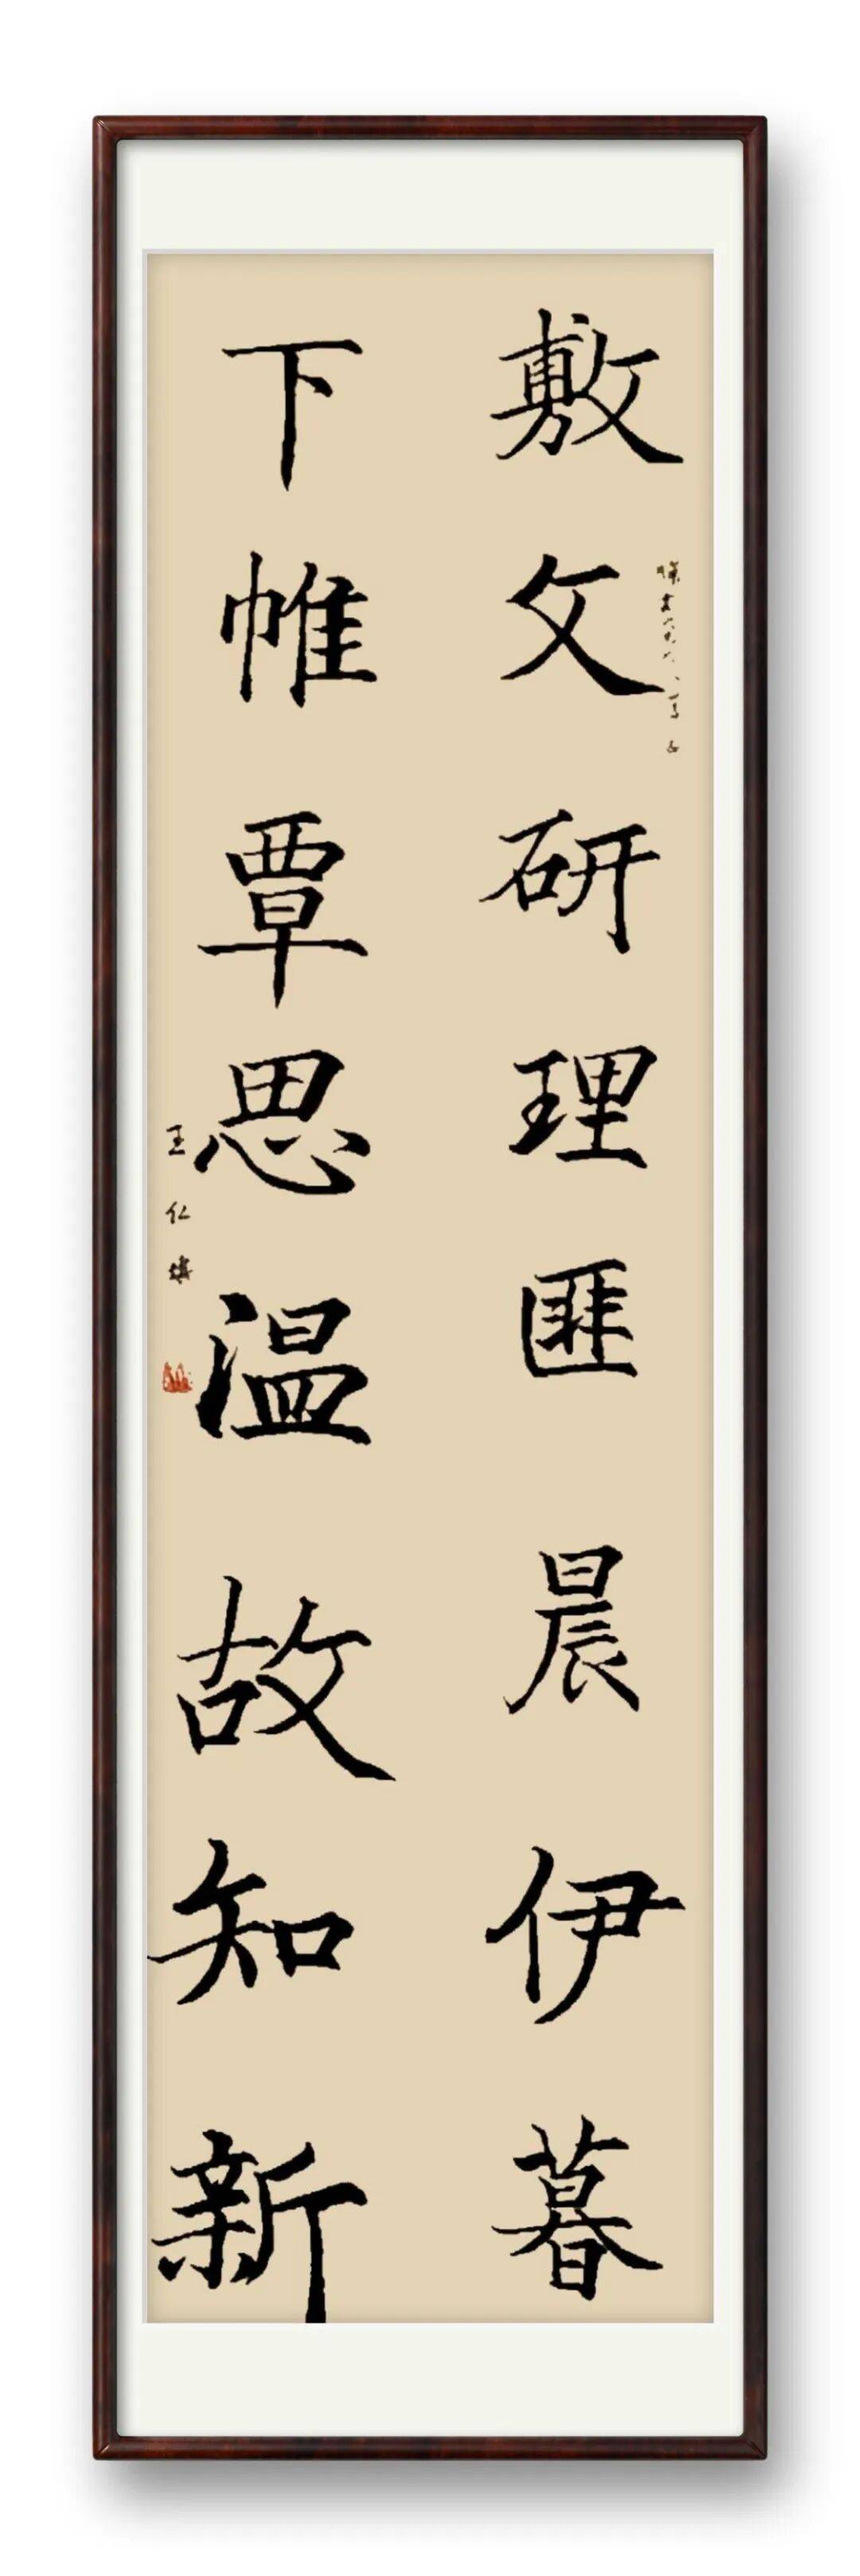 敷文研理匪晨伊暮
下帷覃思温故知新
王仁堪